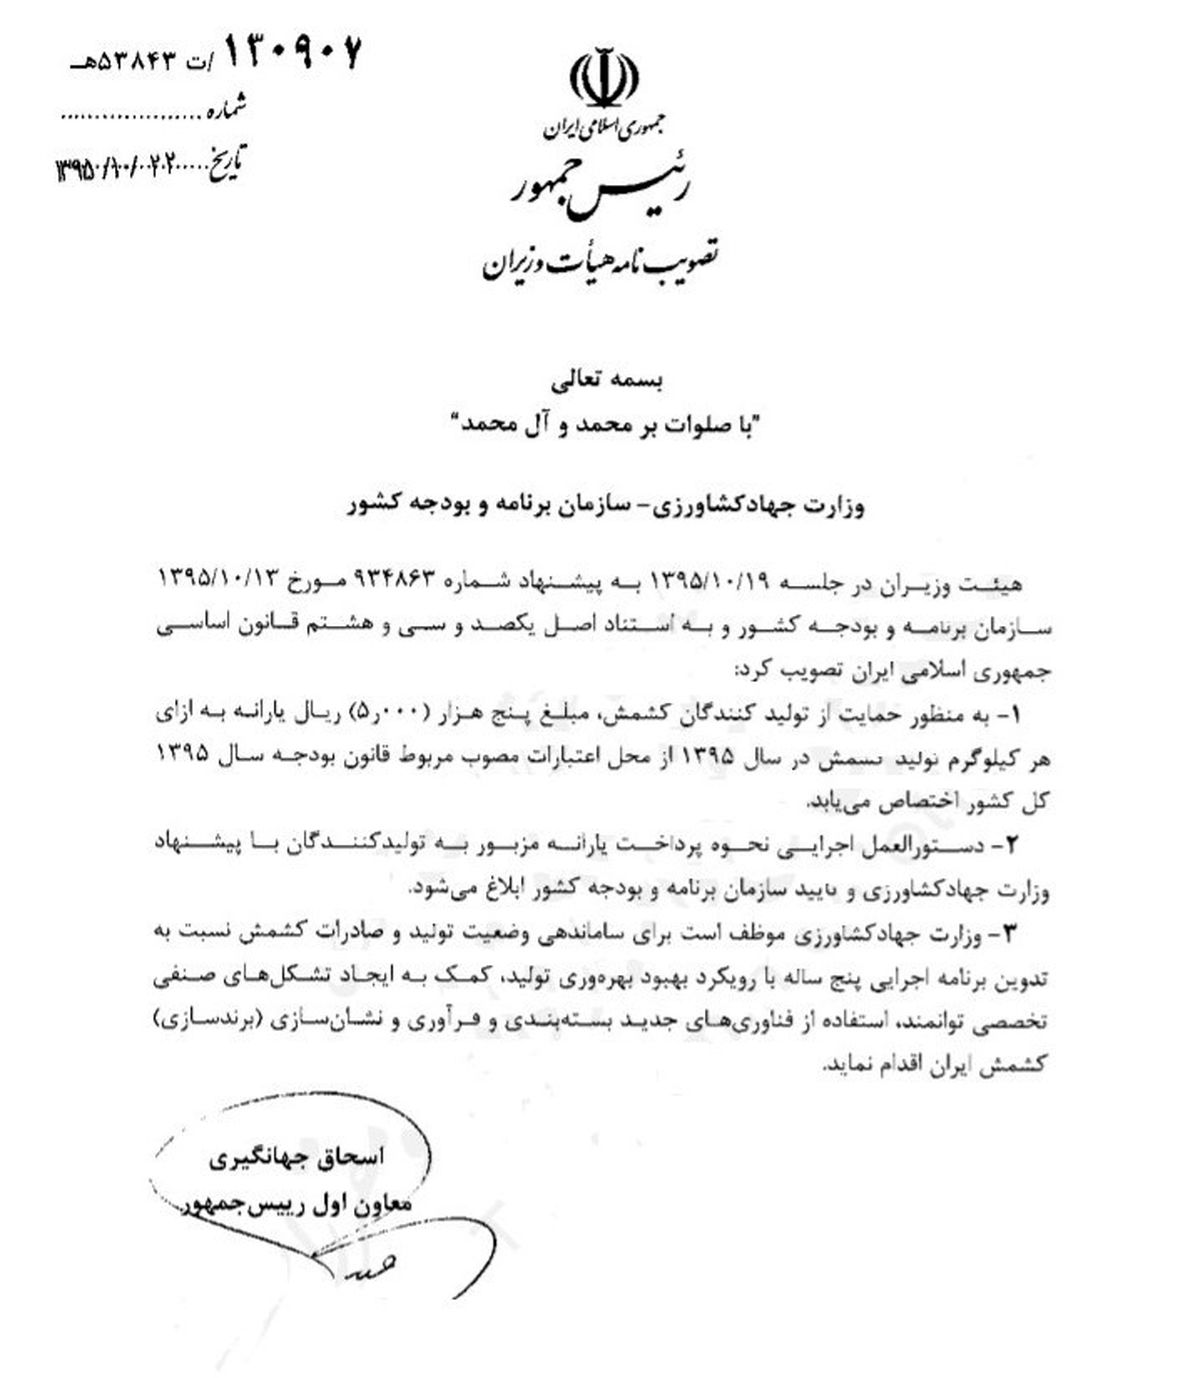 ۱۳۰۹۰۷ /ت ۵۳۸۴۳هـ
شماره ....................
تاریخ......۱۳۹۵/۱۰/۲۲
جمهوری اسلامی ایران
رئیس جمهور
تصویب نامه هیأت وزیران
بسمه تعالی
"با صلوات بر محمد و آل محمد"
وزارت جهادکشاورزی – سازمان برنامه و بودجه کشور
هیئت وزیران در جلسه ۱۳۹۵/۱۰/۱۹ به پیشنهاد شماره ۹۳۴۸۶۳ مورخ ۱۳۹۵/۱۰/۱۳
سازمان برنامه و بودجه کشور و به استناد اصل یکصد و سی و هشتم قانون اساسی
جمهوری اسلامی ایران تصویب کرد:
۱- به منظور حمایت از تولید کنندگان کشمش، مبلغ پنج هزار (۵٫۰۰۰) ریال یارانه به ازای
هر کیلوگرم تولید کشمش در سال ۱۳۹۵ از محل اعتبارات مصوب مربوط قانون بودجه سال ۱۳۹۵
کل کشور اختصاص می‌یابد.
۲- دستورالعمل اجرایی نحوه پرداخت یارانه مزبور به تولیدکنندگان با پیشنهاد
وزارت جهادکشاورزی و تایید سازمان برنامه و بودجه کشور ابلاغ می‌شود.
۳- وزارت جهادکشاورزی موظف است برای ساماندهی وضعیت تولید و صادرات کشمش نسبت به
تدوین برنامه اجرایی پنج ساله با رویکرد بهبود بهره‌وری تولید، کمک به ایجاد تشکل‌های صنفی
تخصصی توانمند، استفاده از فناوری‌های جدید بسته‌بندی و فرآوری و نشان‌سازی (برندسازی)
کشمش ایران اقدام نماید.
اسحاق جهانگیری
معاون اول رییس‌جمهور